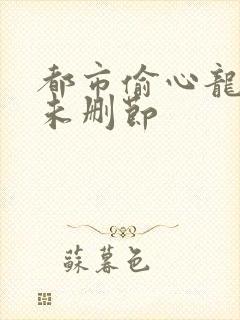 都市偷心龍
未删節
蘇暮色